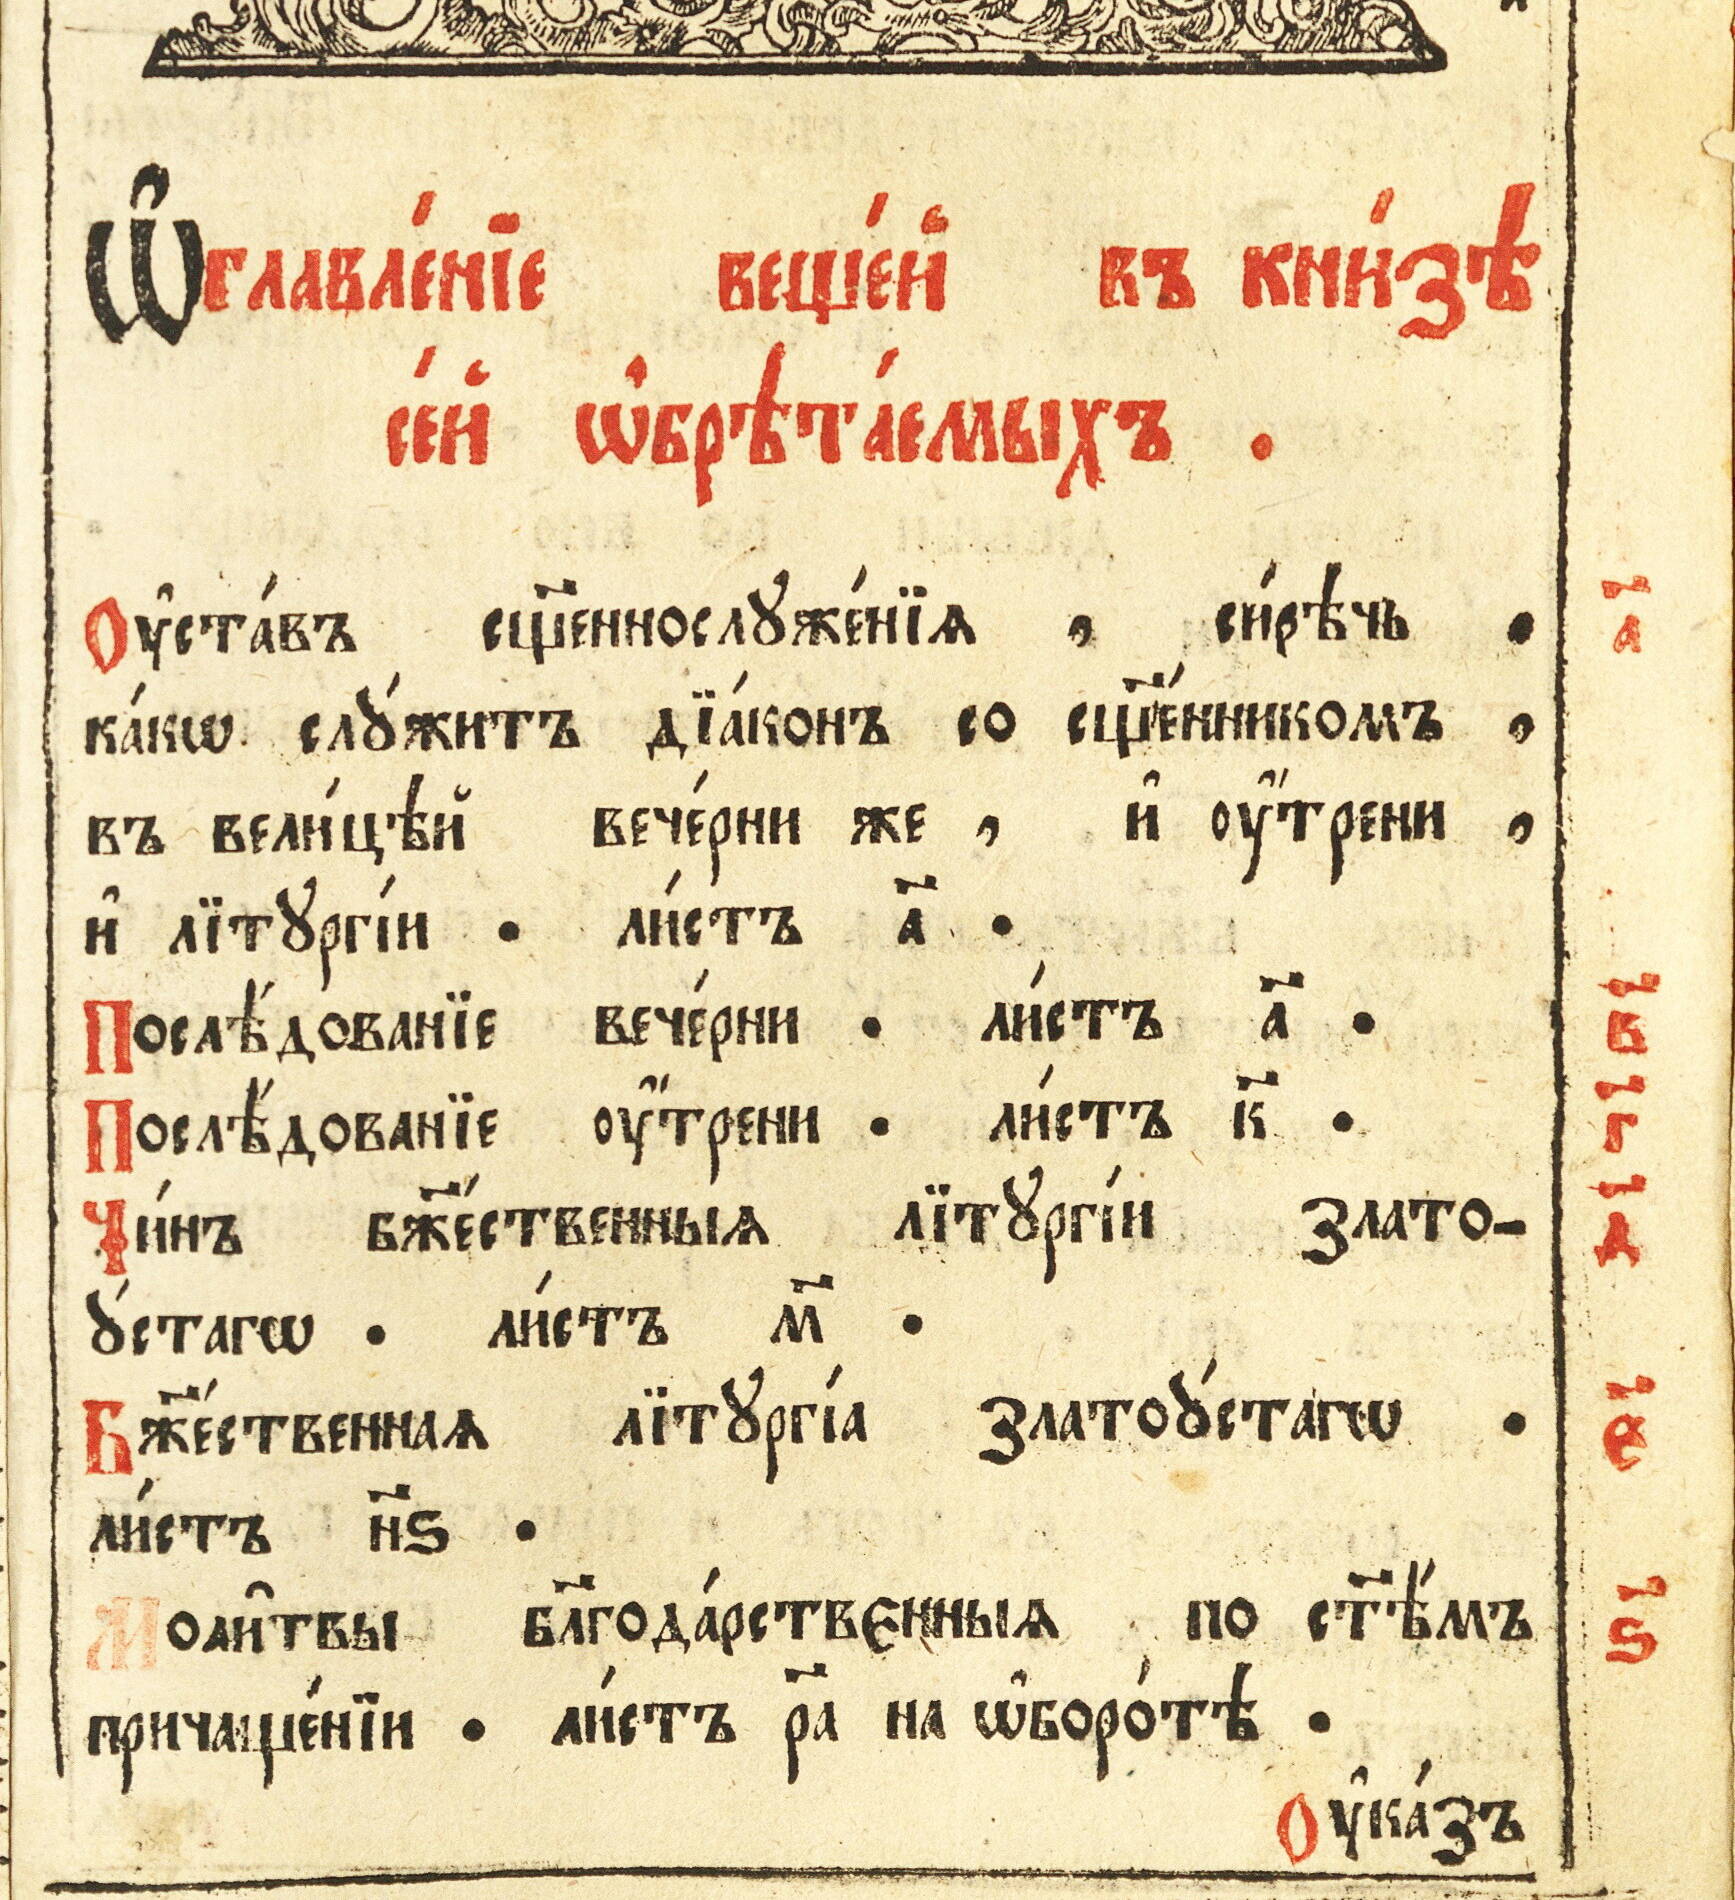 Ѡ҆главле́нїе веще́й въ кни́зѣ
се́й ѡ҆брѣта́емыхъ .
Оу҆ста́въ сщ҃еннослꙋже́нїѧ , си́рѣчь . а҃
ка́кѡ слꙋ́житъ дїа́конъ со сщ҃е́нникомъ ,
въ вели́цѣй вече́рни же , и҆ оу҆́трени ,
и҆ лїтꙋргі́и . ли́стъ а҃ .
Послѣ́дованїе вече́рни . ли́стъ а҃ . в҃
Послѣ́дованїе оу҆́трени . ли́стъ к҃ . г҃
Чи́нъ бж҃е́ственныѧ лїтꙋргі́и Злато- д҃
ꙋ́стагѡ . ли́стъ м҃ .
Бж҃е́ственнаѧ лїтꙋргі́а Златоꙋ́стагѡ . є҃
ли́стъ н҃ѕ .
Моли҆твы бл҃года́рствєнныѧ по ст҃ѣ́мъ ѕ҃
причаще́нїи . ли́стъ р҃а на ѡ҆боро́тѣ .
Оу҆ка́зъ